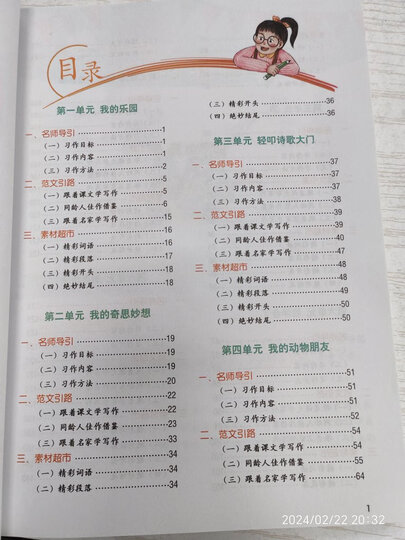 目录
第一单元 我的乐园
一、名师导引 1
（一）习作目标 1
（二）习作内容 1
（三）习作方法 2
二、范文引路 5
（一）跟着课文学写作 5
（二）同龄人佳作借鉴 6
（三）跟着名家学写作 15
三、素材超市 16
（一）精彩词语 16
（二）精彩段落 17
（三）精彩开头 18
（四）绝妙结尾 18
第二单元 我的奇思妙想
一、名师导引 19
（一）习作目标 19
（二）习作内容 19
（三）习作方法 20
二、范文引路 22
（一）跟着课文学写作 22
（二）同龄人佳作借鉴 23
（三）跟着名家学写作 33
三、素材超市 34
（一）精彩词语 34
（二）精彩段落 34
（三）精彩开头 36
（四）绝妙结尾 36
第三单元 轻叩诗歌大门
一、名师导引 37
（一）习作目标 37
（二）习作内容 37
（三）习作方法 38
二、范文引路 39
（一）跟着课文学写作 39
（二）同龄人佳作借鉴 40
（三）跟着名家学写作 47
三、素材超市 48
（一）精彩词语 48
（二）精彩段落 49
（三）精彩开头 50
（四）绝妙结尾 50
第四单元 我的动物朋友
一、名师导引 51
（一）习作目标 51
（二）习作内容 51
（三）习作方法 52
二、范文引路 54
（一）跟着课文学写作 54
（二）同龄人佳作借鉴 55
（三）跟着名家学写作 64
1
2024/02/22 20:32